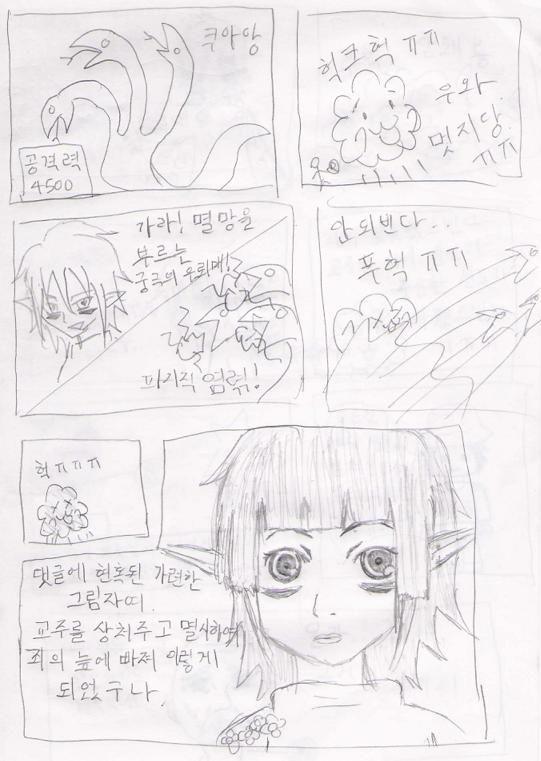 쿠아앙
공격력
4500
헉크헉 ㅠㅠ
우와
멋지당
ㅠㅠ
가라! 멸망을
부르는
궁극의
파지직
안되빈다..
푸헉 ㅠㅠ
헉 ㅠㅠㅠ
댓글에 현혹된 가련한
그림자띠.
교주를 상처주고 멸시하여
죄의 늪에 빠져 이렇게
되었구나.